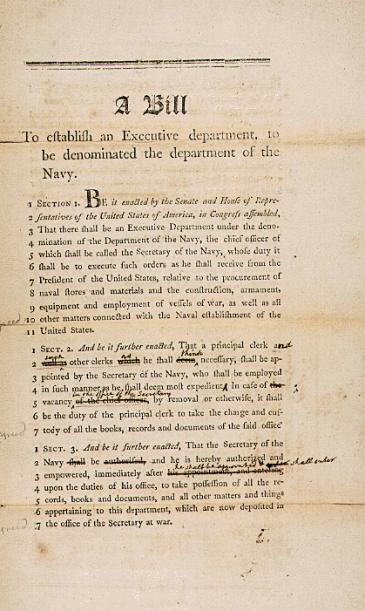 A Bill
To establish an Executive department, to
be denominated the department of the
Navy.
1 SECTION 1. BE it enacted by the Senate and House of Repre-
2 sentatives of the United States of America, in Congress assembled,
3 That there shall be an Executive Department under the deno-
4 mination of the Department of the Navy, the chief officer of
5 which shall be called the Secretary of the Navy, whose duty it
6 shall be to execute such orders as he shall receive from the
7 President of the United States, relative to the procurement of
8 naval stores and materials and the construction, armament,
9 equipment and employment of vessels of war, as well as all
agreed 10 other matters connected with the Naval establishment of the
11 United States.
1 SECT. 2. And be it further enacted, That a principal clerk and
such think
2 other clerks he shall deem necessary, shall be ap-
3 pointed by the Secretary of the Navy, who shall be employed
4 in such manner as he shall deem most expedient. In case of the
in the office of the Secretary
5 vacancy of the chief officer, by removal or otherwise, it shall
6 be the duty of the principal clerk to take the charge and cus-
agreed 7 tody of all the books, records and documents of the said office
1 SECT. 3. And be it further enacted, That the Secretary of the
2 Navy shall be authorised, and he is hereby authorized and
he shall be appointed shall enter
3 empowered, immediately after his appointment, and entering
4 upon the duties of his office, to take possession of all the re-
5 cords, books and documents, and all other matters and things
6 appertaining to this department, which are now deposited in
agreed 7 the office of the Secretary at war.